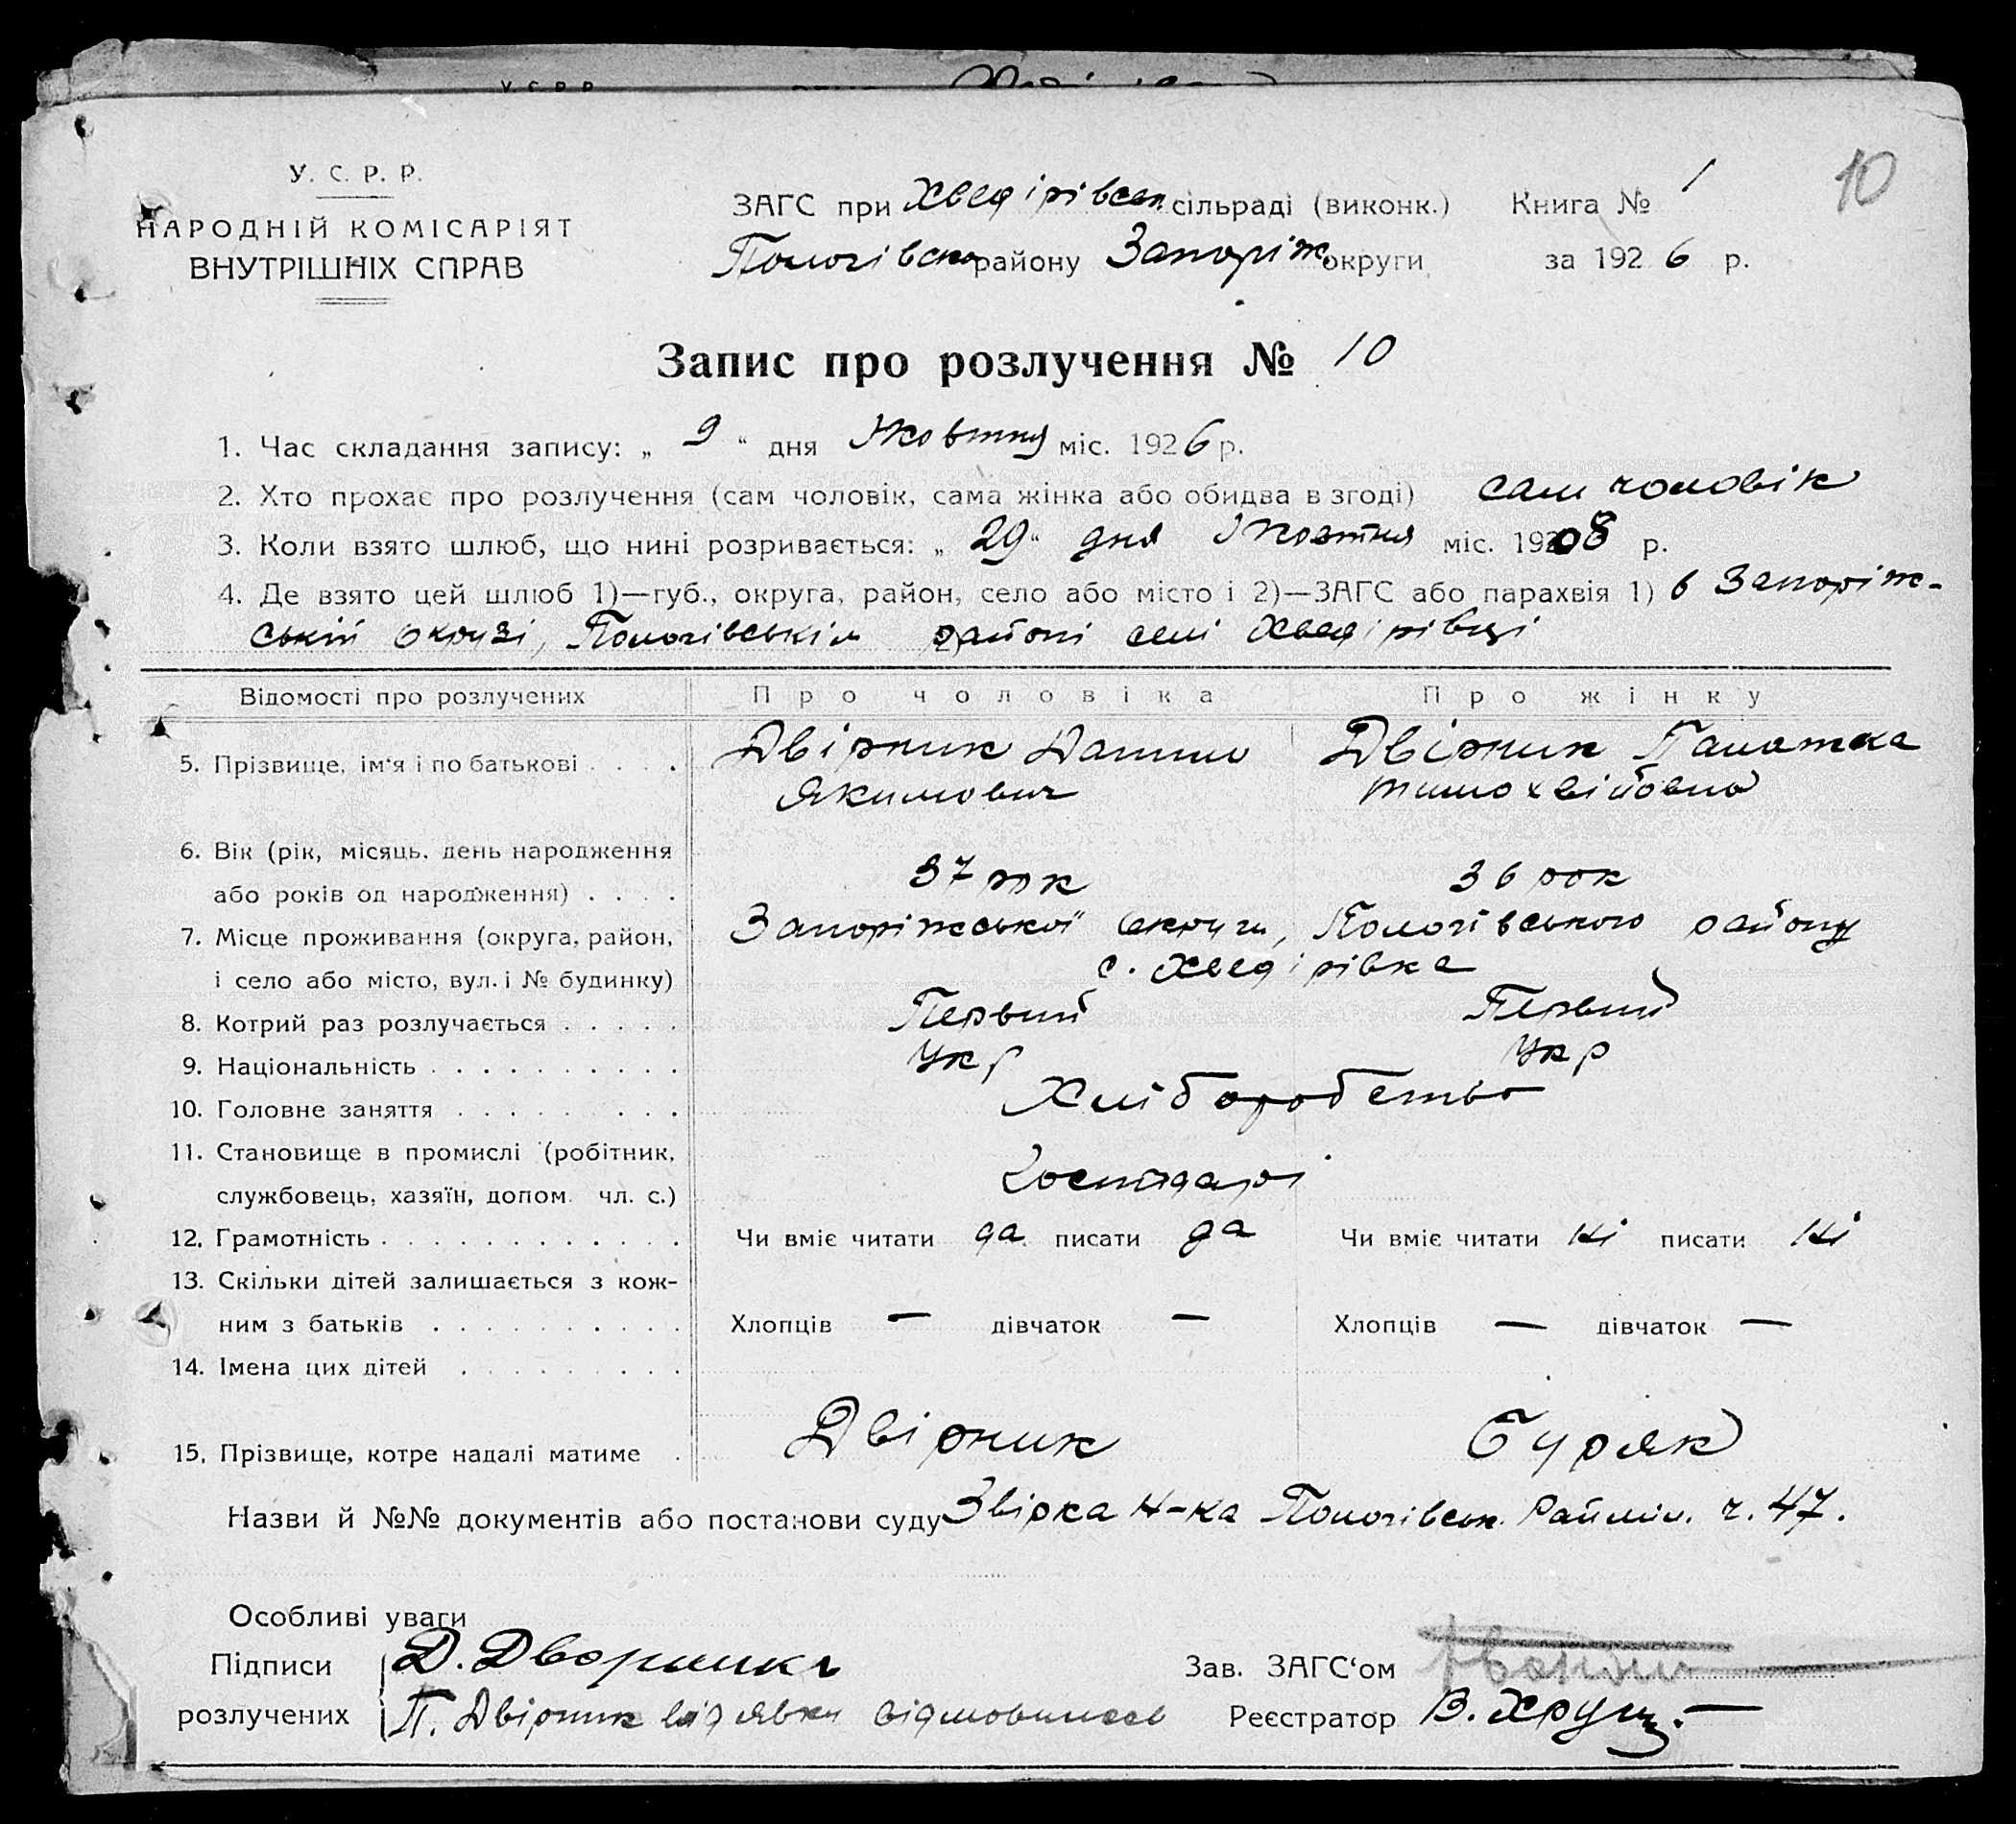 У. С. Р. Р.
НАРОДНІЙ КОМІСАРІЯТ
ВНУТРІШНІХ СПРАВ
ЗАГС при Хведірівськ. сільраді (виконк.) Книга № 1
10
Пологівсько району Запоріж округи за 1926 р.
Запис про розлучення № 10
1. Час складання запису: „ 9 “ дня Жовтня міс. 1926 р.
2. Хто прохає про розлучення (сам чоловік, сама жінка або обидва в згоді) сам чоловік
3. Коли взято шлюб, що нині розривається: „ 29 “ дня Жовтня міс. 1908 р.
4. Де взято цей шлюб 1)—губ., округа, район, село або місто і 2)—ЗАГС або парахвія 1) в Запоріж-
ській окрузі, Пологівськім районі селі Хведірівці
Відомості про розлучених Про чоловіка Про жінку
5. Прізвище, ім‘я і по батькові . . . . Двірник Данило Двірник Палажка
Якимович Тимохвіївна
6. Вік (рік, місяць, день народження
або років од народження) . . . . 37 рок 36 рок
7. Місце проживання (округа, район, Запоріжської округи, Пологівського району
і село або місто, вул. і № будинку) с. Хведірівка
8. Котрий раз розлучається . . . . . Первий Первий
9. Національність . . . . . . . . . . Укр Укр
10. Головне заняття . . . . . . . . Хліборобство
11. Становище в промислі (робітник,
службовець, хазяїн, допом. чл. с.) Господарі
12. Грамотність . . . . . . . . . . . . Чи вміє читати да писати да Чи вміє читати ні писати ні
13. Скільки дітей залишається з кож-
ним з батьків . . . . . . . . . . Хлопців — дівчаток — Хлопців — дівчаток —
14. Імена цих дітей . . . . . . . . .
15. Прізвище, котре надалі матиме . Двірник Буряк
Назви й №№ документів або постанови суду Звірка Н-ка Пологівськ. Райміл. ч. 47.
Особливі уваги
Підписи Д. Дворникъ Зав. ЗАГС‘ом
розлучених П. Двірник від явки відмовилась Реєстратор В. Хрущ.